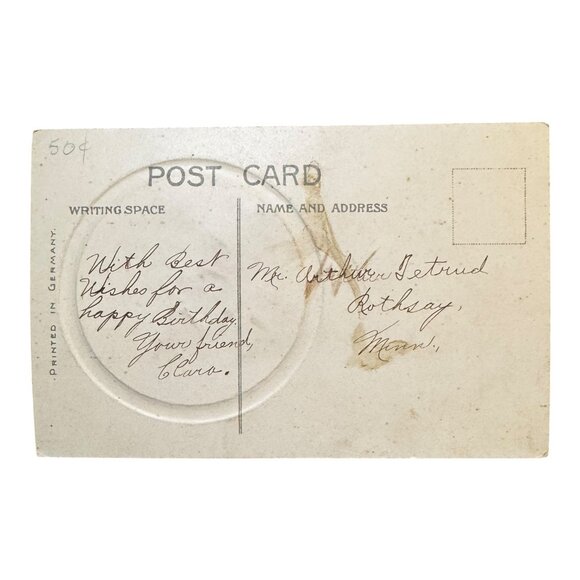 50¢
POST CARD
WRITING SPACE
NAME AND ADDRESS
PRINTED IN GERMANY.
With Best
Wishes for a
happy Birthday
Your friend,
Clara.
Mr. Arthur Tetrud
Rothsay,
Minn.,